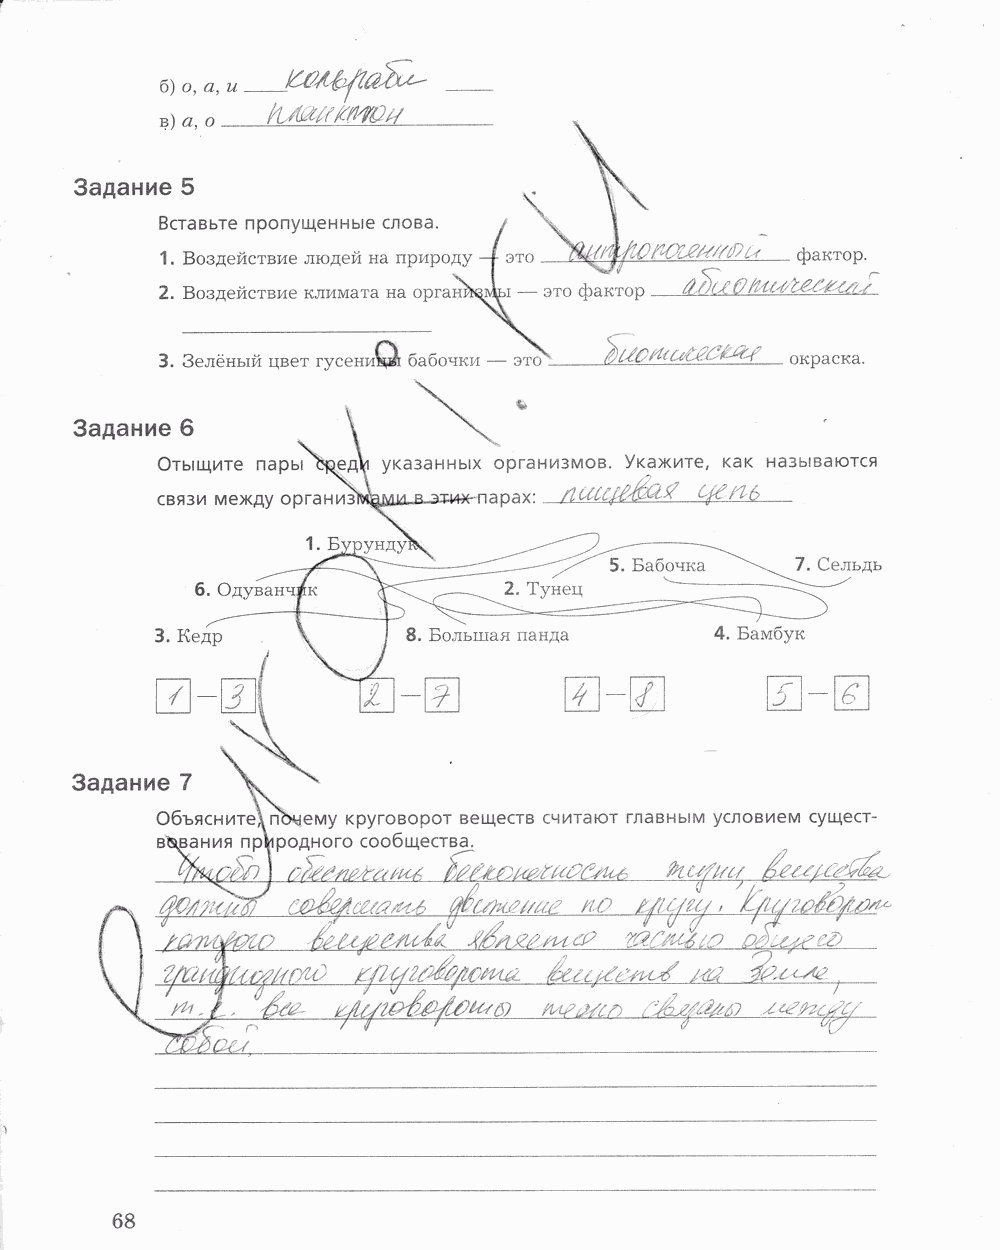 б) о, а, и кольраби
в) а, о планктон
Задание 5
Вставьте пропущенные слова.
1. Воздействие людей на природу — это антропогенный фактор.
2. Воздействие климата на организмы — это фактор абиотический
3. Зелёный цвет гусеницы бабочки — это биотическая окраска.
Задание 6
Отыщите пары среди указанных организмов. Укажите, как называются
связи между организмами в этих парах: пищевая цепь
1. Бурундук
5. Бабочка 7. Сельдь
6. Одуванчик 2. Тунец
3. Кедр 8. Большая панда 4. Бамбук
1 — 3 2 — 7 4 — 8 5 — 6
Задание 7
Объясните, почему круговорот веществ считают главным условием сущест-
вования природного сообщества.
Чтобы обеспечить бесконечность жизни, вещества
должны совершать движение по кругу. Круговорот
каждого вещества является частью общего
грандиозного круговорота веществ на Земле,
т.к. все круговороты тесно связаны между
собой.
68